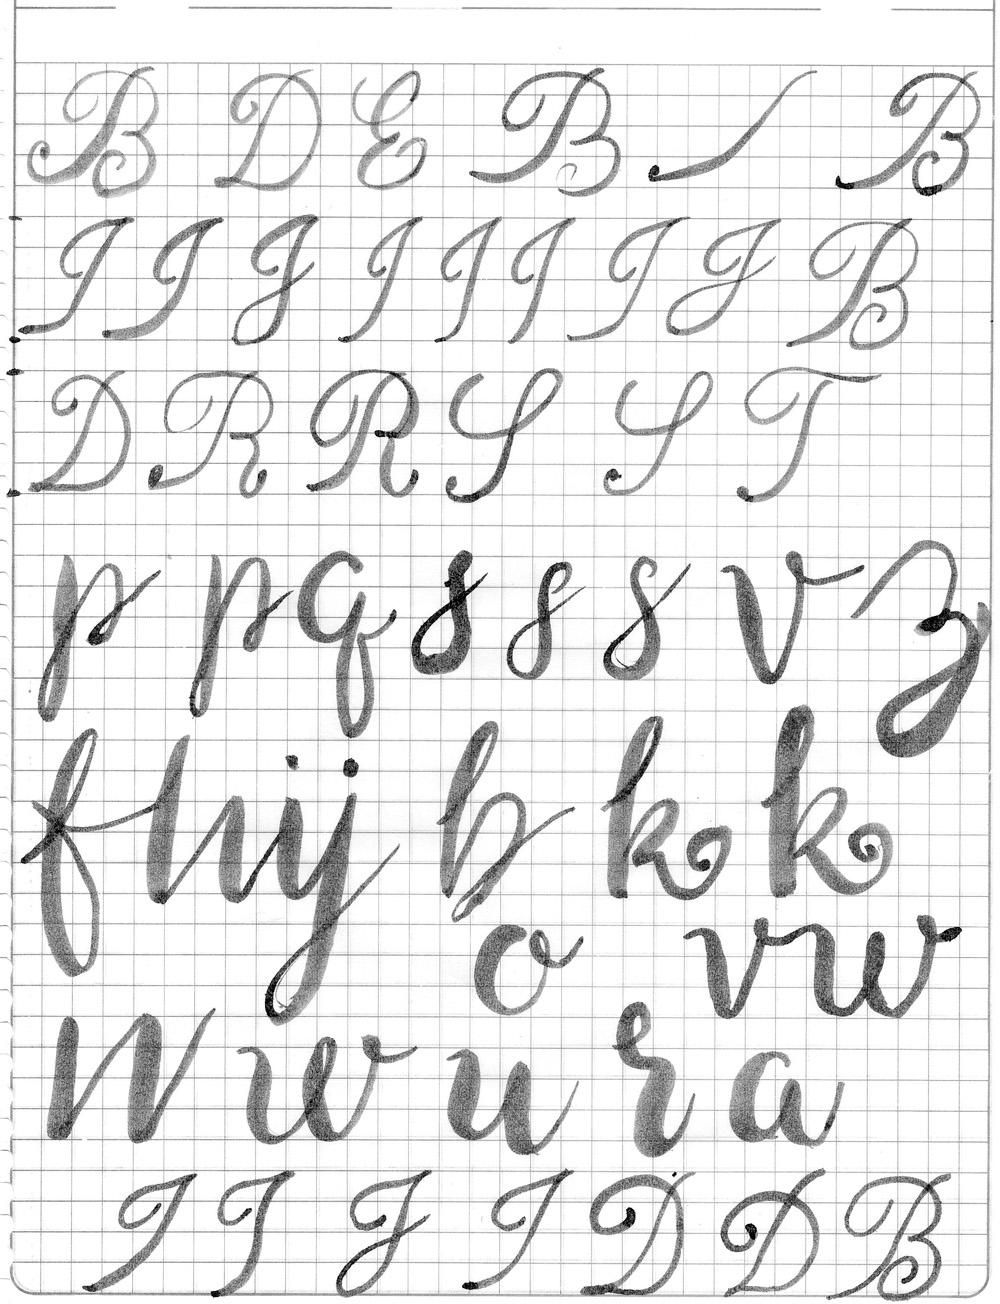 B D E B B
I I J I I I I J B
D R R S S T
p p q s s s v z
f h i j h k k
o v w
w w u r a
I I J I D D B